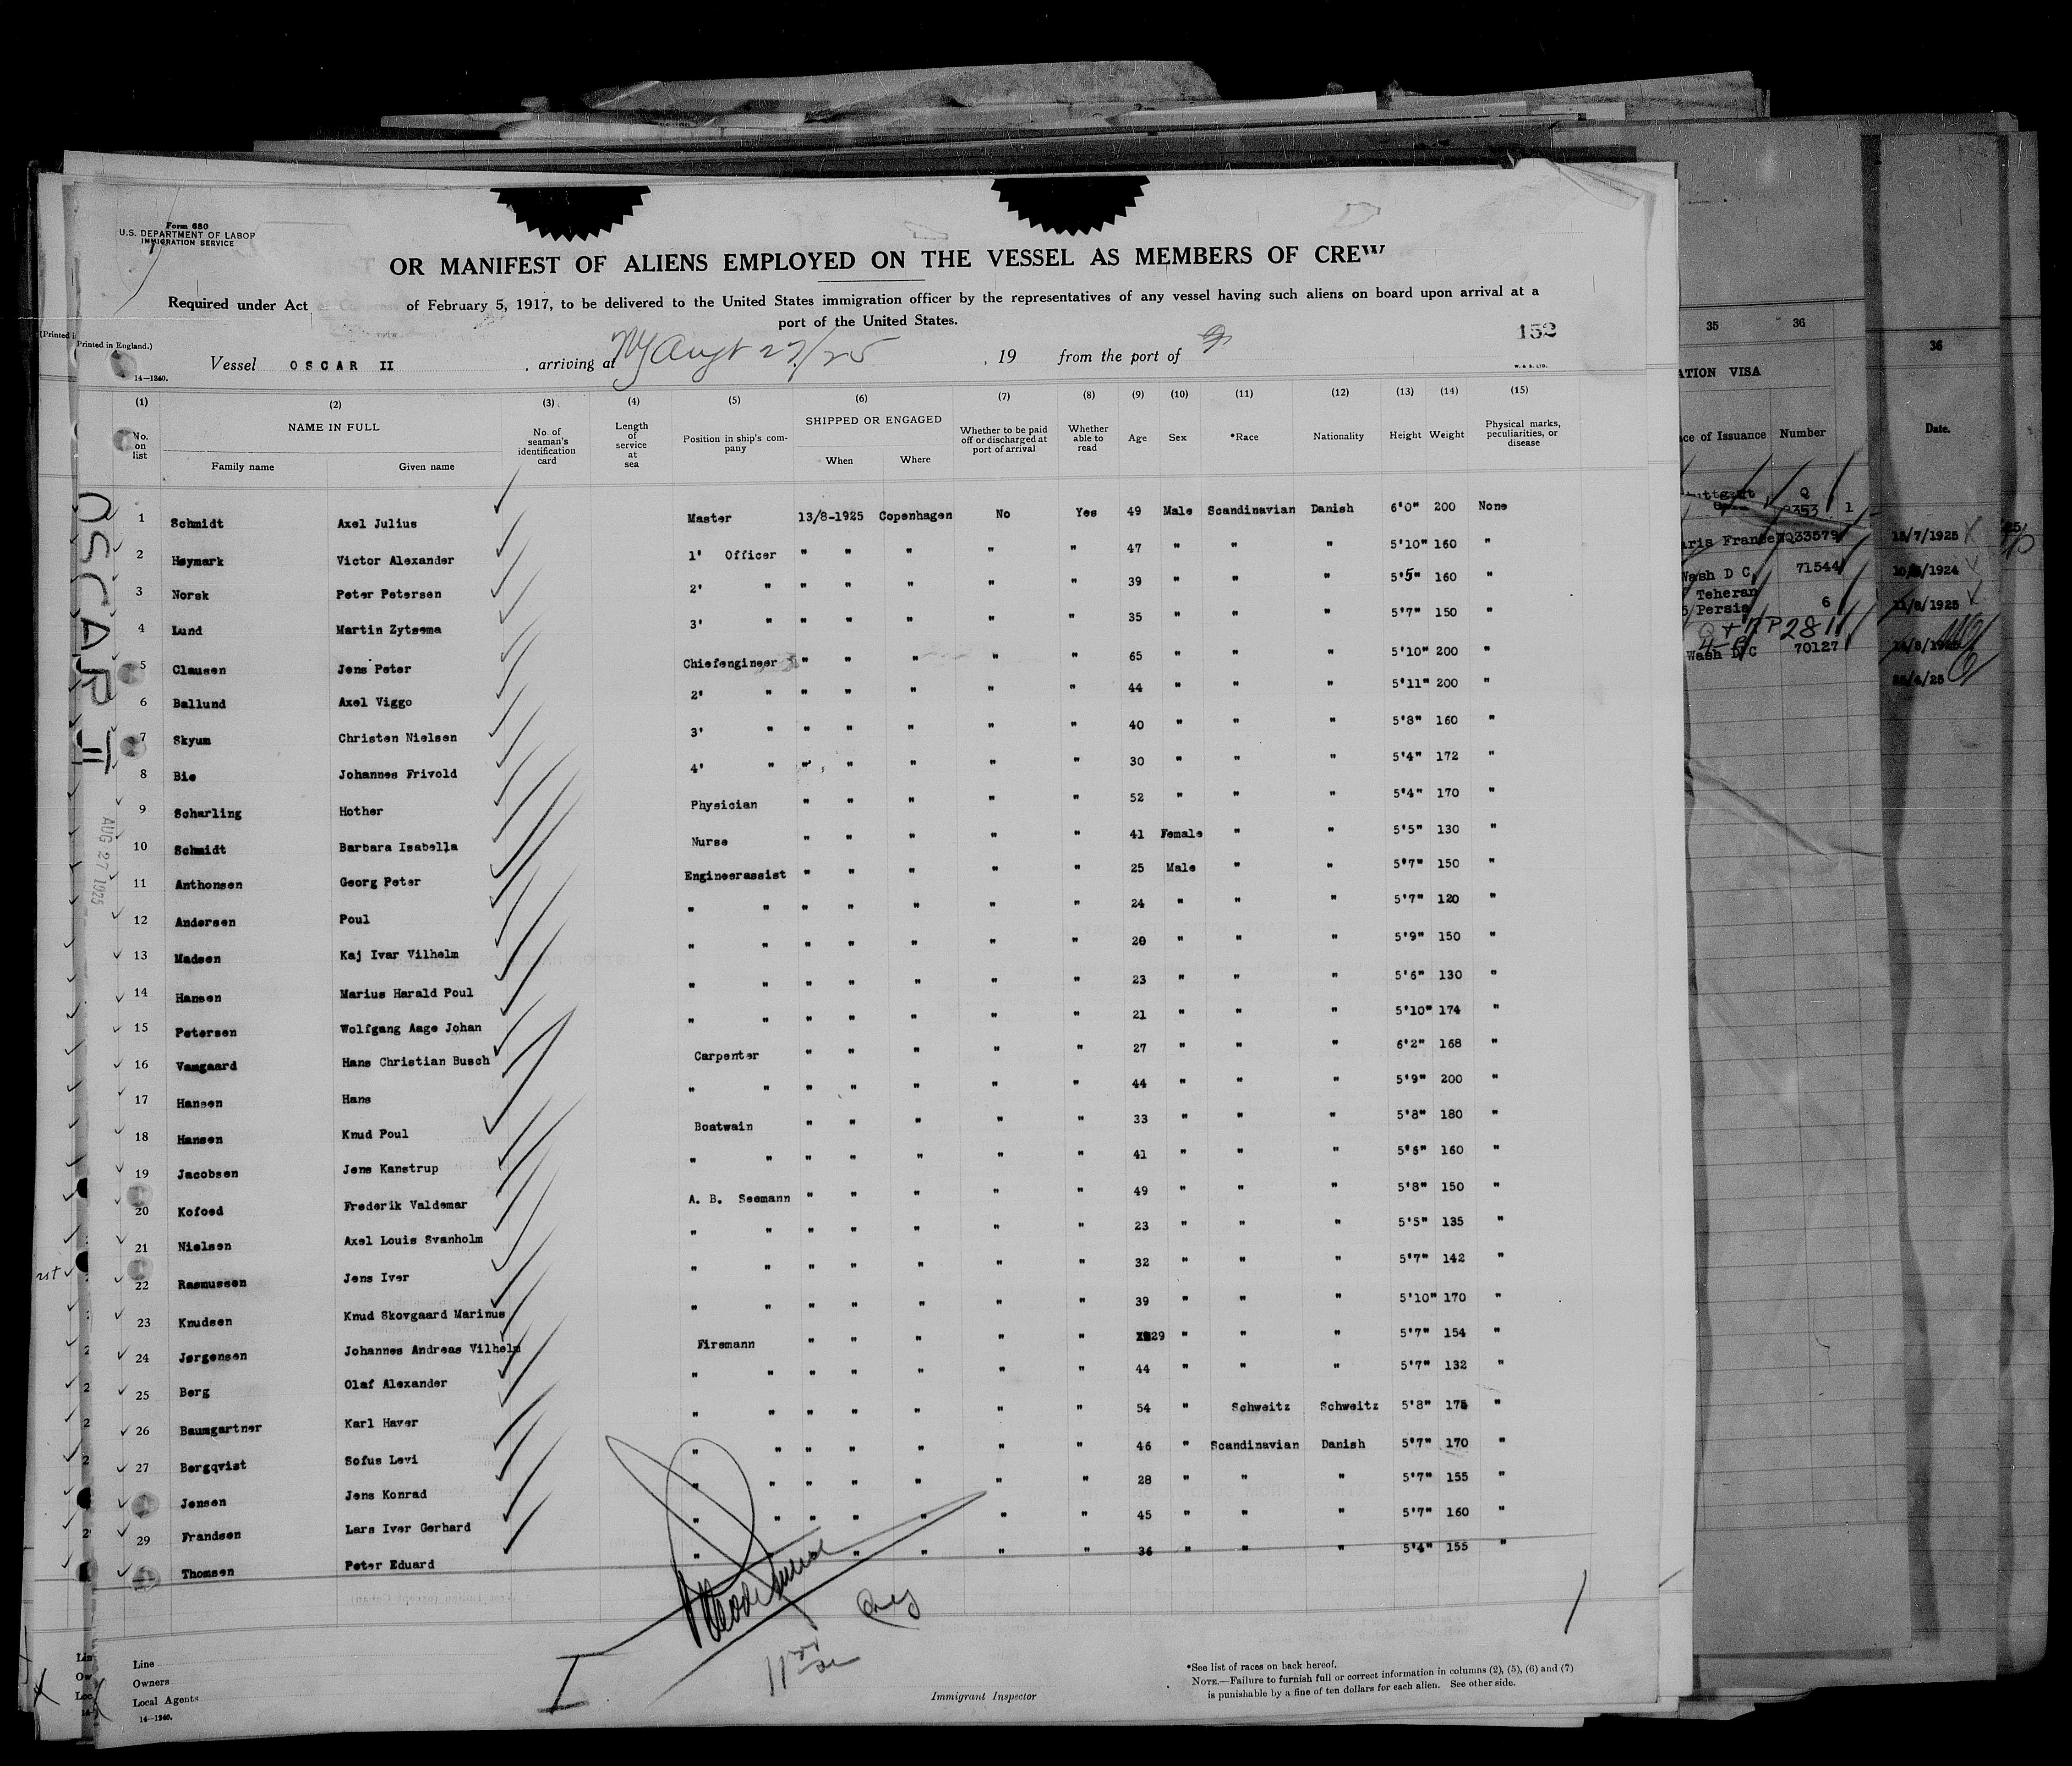 Form 680
U.S. DEPARTMENT OF LABOR
IMMIGRATION SERVICE
OR MANIFEST OF ALIENS EMPLOYED ON THE VESSEL AS MEMBERS OF CREW
Required under Act of Congress of February 5, 1917, to be delivered to the United States immigration officer by the representatives of any vessel having such aliens on board upon arrival at a
port of the United States.
152
Printed in England.)
Vessel OSCAR II , arriving at NY Augt 27/25 , 19 from the port of
14—1240.
W. & S. LTD.
(1) (2) (3) (4) (5) (6) (7) (8) (9) (10) (11) (12) (13) (14) (15)
No. on list NAME IN FULL Family name Given name No. of seaman's identification card Length of service at sea Position in ship's company SHIPPED OR ENGAGED When Where Whether to be paid off or discharged at port of arrival Whether able to read Age Sex *Race Nationality Height Weight Physical marks, peculiarities, or disease
1 Schmidt Axel Julius Master 13/8-1925 Copenhagen No Yes 49 Male Scandinavian Danish 6'0" 200 None
2 Høymark Victor Alexander 1' Officer " " " " " 47 " " " 5'10" 160 "
3 Norsk Peter Petersen 2' " " " " " " 39 " " " 5'5" 160 "
4 Lund Martin Zytsema 3' " " " " " " 35 " " " 5'7" 150 "
5 Clausen Jens Peter Chiefengineer " " " " " 65 " " " 5'10" 200 "
6 Ballund Axel Viggo 2' " " " " " " 44 " " " 5'11" 200 "
7 Skyum Christen Nielsen 3' " " " " " " 40 " " " 5'8" 160 "
8 Bie Johannes Frivold 4' " " " " " " 30 " " " 5'4" 172 "
9 Scharling Hother Physician " " " " " 52 " " " 5'4" 170 "
10 Schmidt Barbara Isabella Nurse " " " " " 41 Female " " 5'5" 130 "
11 Anthonsen Georg Peter Engineerassist " " " " " 25 Male " " 5'7" 150 "
12 Andersen Poul " " " " " " " 24 " " " 5'7" 120 "
13 Madsen Kaj Ivar Vilhelm " " " " " " " 20 " " " 5'9" 150 "
14 Hansen Marius Harald Poul " " " " " " " 23 " " " 5'6" 130 "
15 Petersen Wolfgang Aage Johan " " " " " " " 21 " " " 5'10" 174 "
16 Vamgaard Hans Christian Busch Carpenter " " " " " 27 " " " 6'2" 168 "
17 Hansen Hans " " " " " " " 44 " " " 5'9" 200 "
18 Hansen Knud Poul Boatwain " " " " " 33 " " " 5'8" 180 "
19 Jacobsen Jens Kanstrup " " " " " " " 41 " " " 5'6" 160 "
20 Kofoed Frederik Valdemar A. B. Seemann " " " " " 49 " " " 5'8" 150 "
21 Nielsen Axel Louis Svanholm " " " " " " " 23 " " " 5'5" 135 "
22 Rasmussen Jens Iver " " " " " " " 32 " " " 5'7" 142 "
23 Knudsen Knud Skovgaard Marinus " " " " " " " 39 " " " 5'10" 170 "
24 Jørgensen Johannes Andreas Vilhelm Firemann " " " " " 29 " " " 5'7" 154 "
25 Berg Olaf Alexander " " " " " " " 44 " " " 5'7" 132 "
26 Baumgartner Karl Haver " " " " " " " 54 " Schweitz Schweitz 5'8" 175 "
27 Bergqvist Sofus Levi " " " " " " " 46 " Scandinavian Danish 5'7" 170 "
Jensen Jens Konrad " " " " " " " 28 " " " 5'7" 155 "
29 Frandsen Lars Iver Gerhard " " " " " " " 45 " " " 5'7" 160 "
Thomsen Peter Eduard " " " " " " 36 " " " 5'4" 155 "
OSCAR II
AUG 27 1925
Line
Owners
Local Agents
14—1240.
Immigrant Inspector
*See list of races on back hereof.
NOTE.—Failure to furnish full or correct information in columns (2), (5), (6) and (7)
is punishable by a fine of ten dollars for each alien. See other side.
35 36
36
ATION VISA
ce of Issuance Number
Date.
2353 1
aris France 33579
15/7/1925
Wash D C, 71544
/1924
Teheran
Persia 6
11/8/1925
281
Wash D C 70127
/4/25